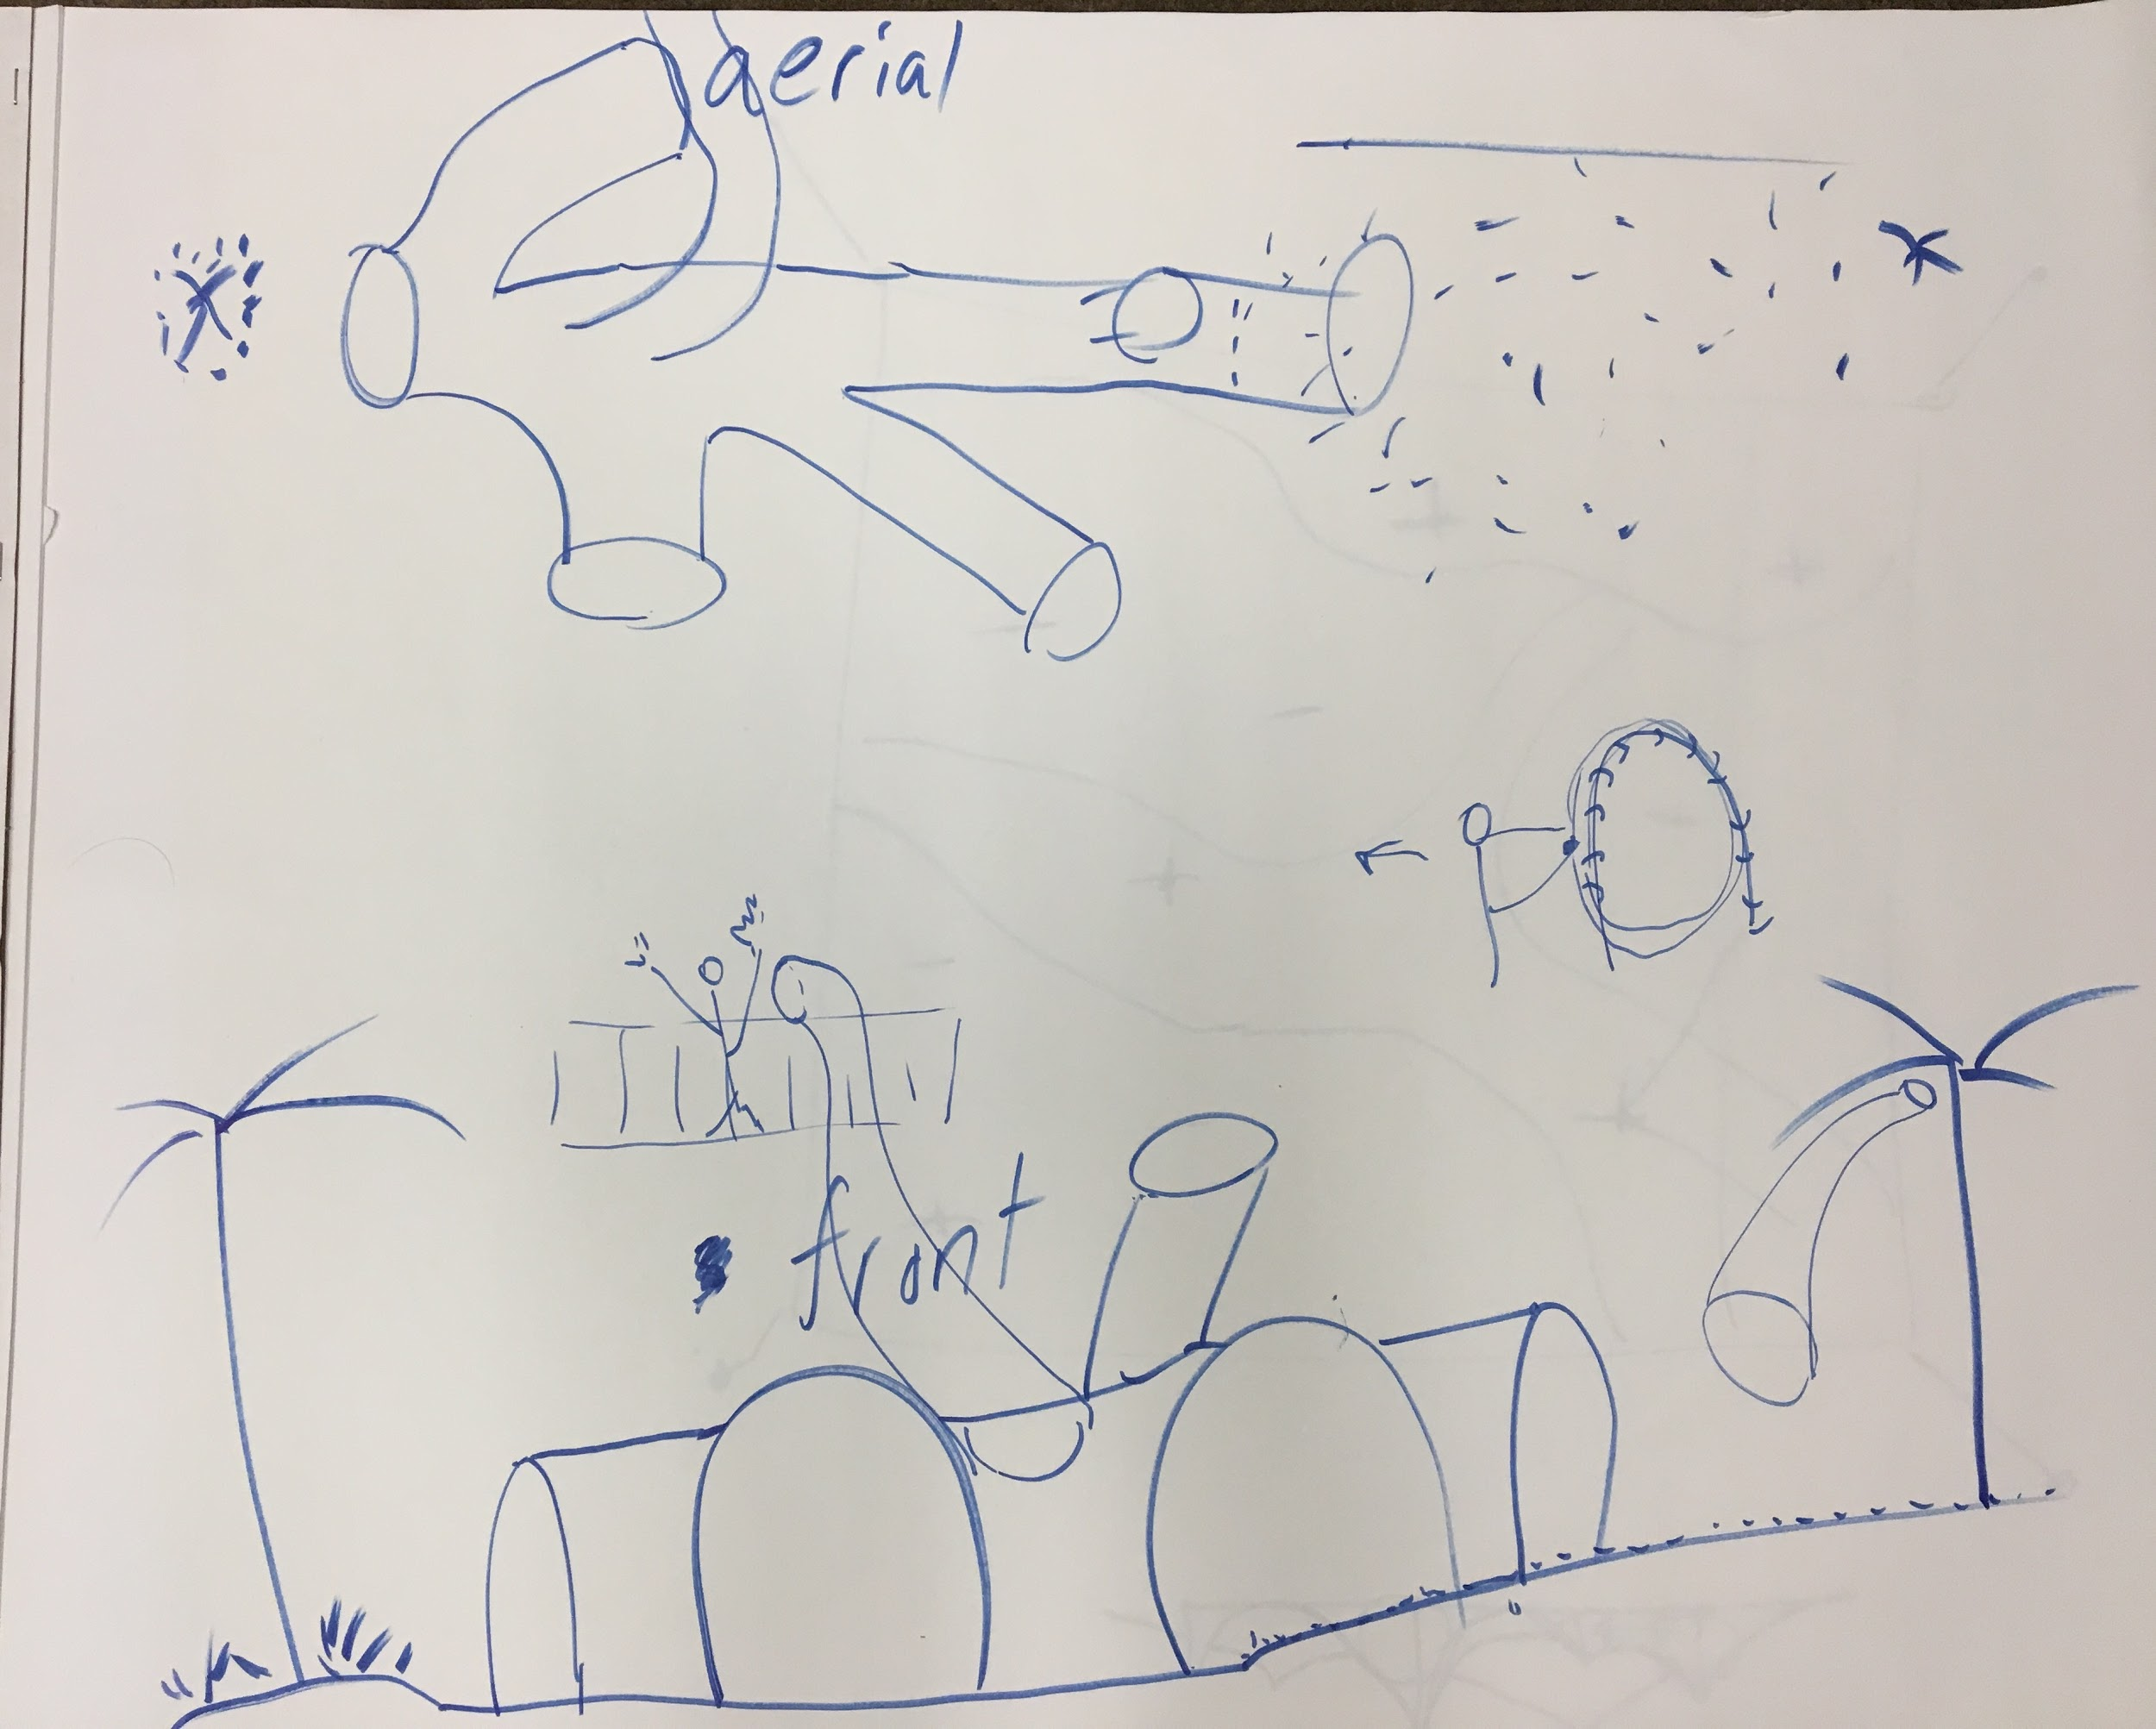 aerial
front